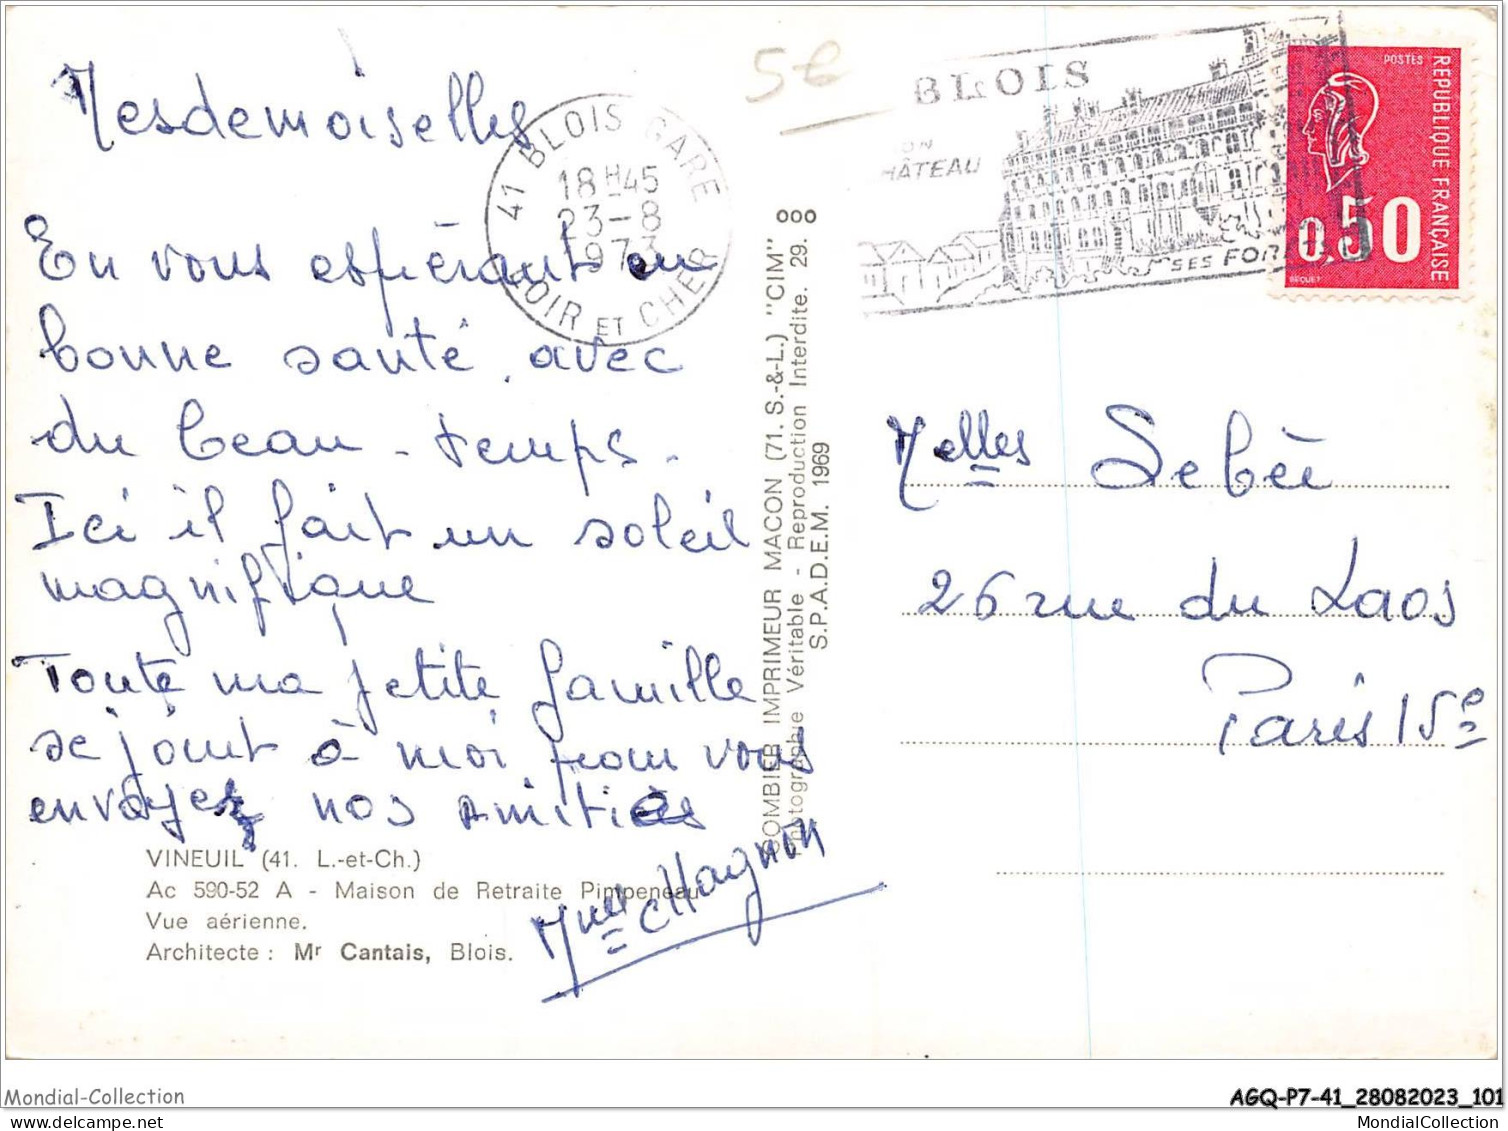 Mesdemoiselles
En vous espérant en
bonne santé avec
du beau-temps.
Ici il fait un soleil
magnifique
Toute ma petite famille
se joint à moi pour vous
envoyer nos amitiés
Mme Hagnon
VINEUIL (41. L.-et-Ch.)
Ac 590-52 A - Maison de Retraite Pimpeneau
Vue aérienne.
Architecte : Mr Cantais, Blois.
41 BLOIS GARE
18H45
23-8
1973
LOIR ET CHER
COMBIER IMPRIMEUR MACON (71. S.-&-L.) "CIM"
Photographie Véritable - Reproduction Interdite. 29. ooo
S.P.A.D.E.M. 1969
5€
BLOIS
SON
CHÂTEAU
SES FORÊTS
POSTES
REPUBLIQUE FRANÇAISE
0.50
BEQUET
Melles Sebèi
26 rue du Laos
Paris 15e
Mondial-Collection
AGQ-P7-41_28082023_101
www.mondial-collection.com
MondialCollection